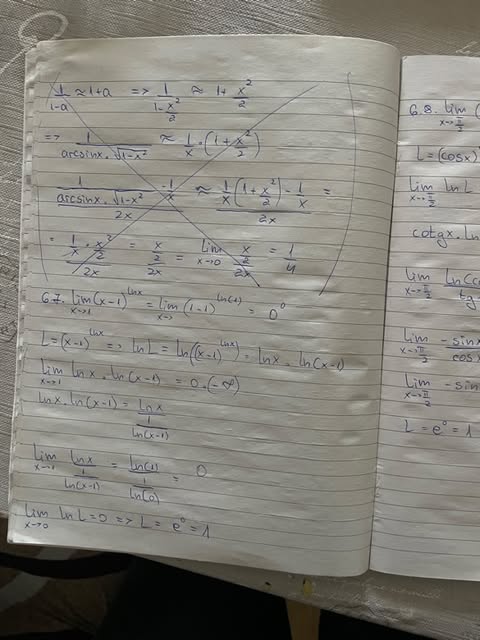 1/(1-a) ≈ 1+a => 1/(1-x²/2) ≈ 1+x²/2
=> 1/(arcsinx·√(1-x²)) ≈ 1/x·(1+x²/2)
(1/(arcsinx·√(1-x²)) - 1/x)/2x ≈ (1/x(1+x²/2) - 1/x)/2x =
= (1/x·x²/2)/2x = (x/2)/2x = lim x→0 (x/2)/2x = 1/4
6.7. lim x→1 (x-1)^lnx = lim x→ (1-1)^ln(1) = 0⁰
L=(x-1)^lnx => lnL = ln((x-1)^lnx) = lnx · ln(x-1)
lim x→1 lnx · ln(x-1) = 0·(-∞)
lnx · ln(x-1) = lnx/(1/ln(x-1))
lim x→1 lnx/(1/ln(x-1)) = ln(1)/(1/ln(0)) = 0
lim x→0 lnL = 0 => L = e⁰ = 1
6.8. lim x→π/2 (
L=(cosx)
lim x→π/2 lnL
cotgx·ln
lim x→π/2 ln(cos/tg
lim x→π/2 -sinx/cosx
lim x→π/2 -sin
L = e⁰ = 1